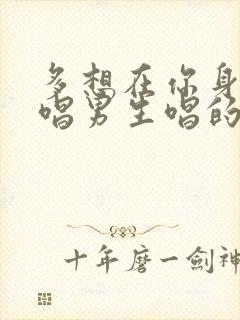 多想在你身
唱男生唱的
十年磨一劍神